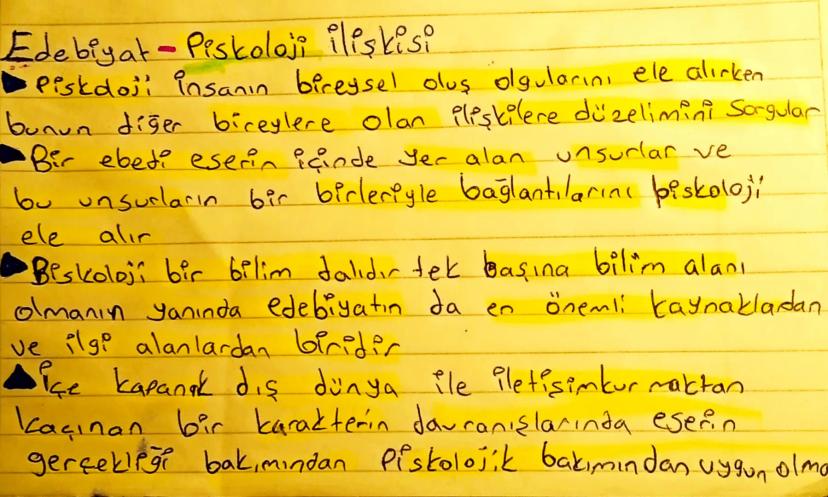 Edebiyat - Piskoloji ilişkisi
Piskoloji insanın bireysel oluş olgularını ele alırken
bunun diğer bireylere olan ilişkilere düzelimini sorgular
Bir ebedi eserin içinde yer alan unsurlar ve
bu unsurların bir birleriyle bağlantılarını piskoloji
ele alır
Beskoloji bir bilim dalıdır tek başına bilim alanı
olmanın yanında edebiyatın da en önemli kaynaklardan
ve ilgi alanlardan biridir
içe kapanık dış dünya ile iletişimkurmaktan
kaçınan bir karakterin davranışlarında eserin
gerçekliği bakımından Piskolojik bakımından uygun olma